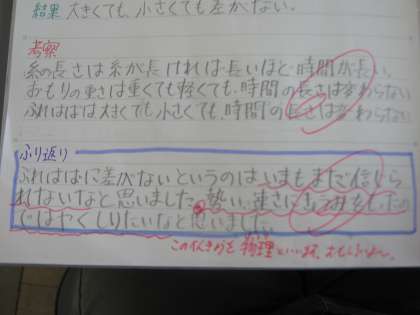 結果 大きくても、小さくても差がない。
考察
糸の長さは糸が長ければ長いほど時間が長い。
おもりの重さは重くても軽くても、時間の長さは変わらない
ふれはばは大きくても小さくても、時間の長さは変わらない
ふり返り
ふれはばに差がないというのはいまもまだ信じら
れないなと思いました。勢い、速さにきょうみをもったの
ではやくしりたいなと思いました。
物理といいます。おもしろいよ〜。